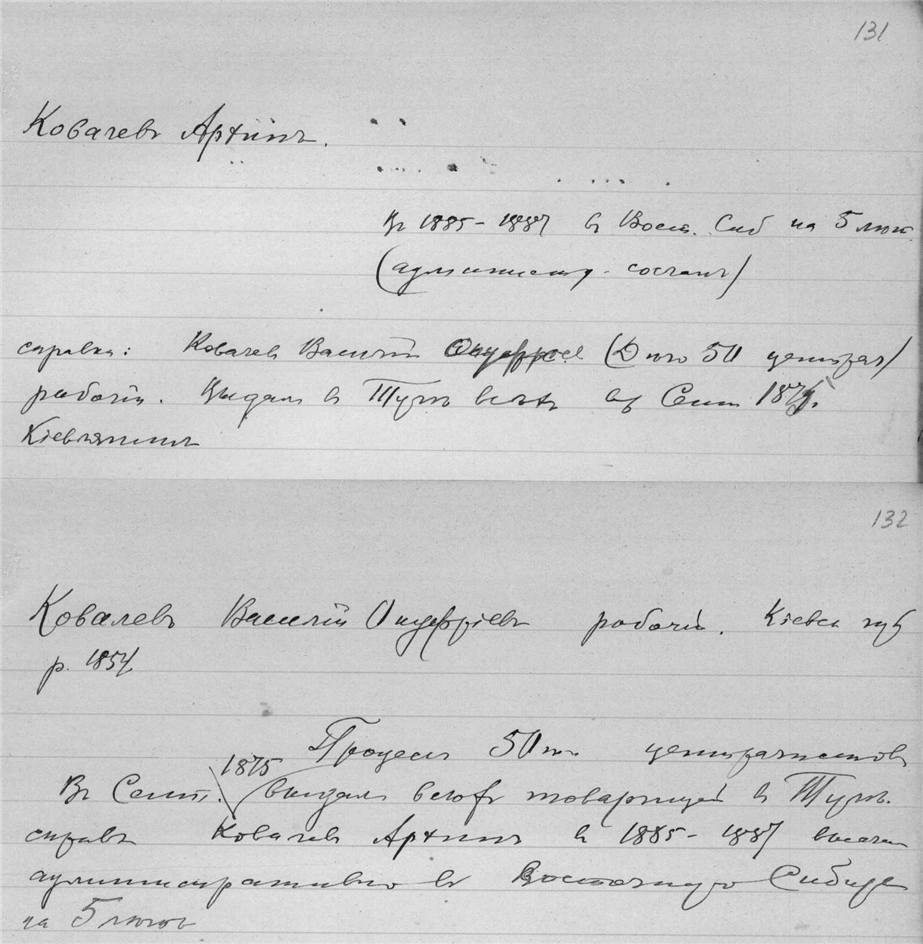 131
Ковалевъ Архипъ.
Въ 1885-1887 в Вост. Сиб на 5 лѣт.
(администр. сослан)
справка: Ковалев Василій Онуфріев (Дѣло 50 централ)
рабочій. Выдал в Тулѣ всѣхъ въ Сент 1875.
Кіевлянинъ
132
Ковалевъ Василій Онуфріевъ рабочій. Кіевск губ
р. 1854
Процессъ 50ти централистов
1875
Въ Сент. выдалъ всѣхъ товарищей в Тулѣ.
справк Ковалев Архипъ в 1885-1887 высла
административно в Восточную Сибирь
на 5 лѣтъ